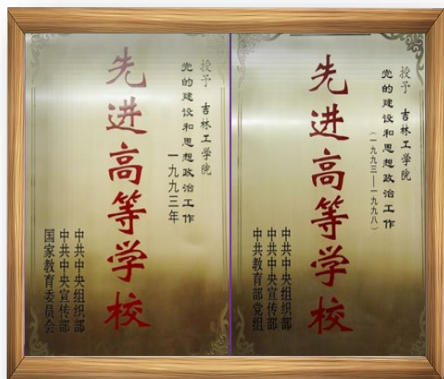 授予 吉林工学院
党的建设和思想政治工作
一九九三年
先进高等学校
中共中央组织部
中共中央宣传部
国家教育委员会
授予 吉林工学院
党的建设和思想政治工作
（一九九三——一九九八）
先进高等学校
中共中央组织部
中共中央宣传部
中共教育部党组